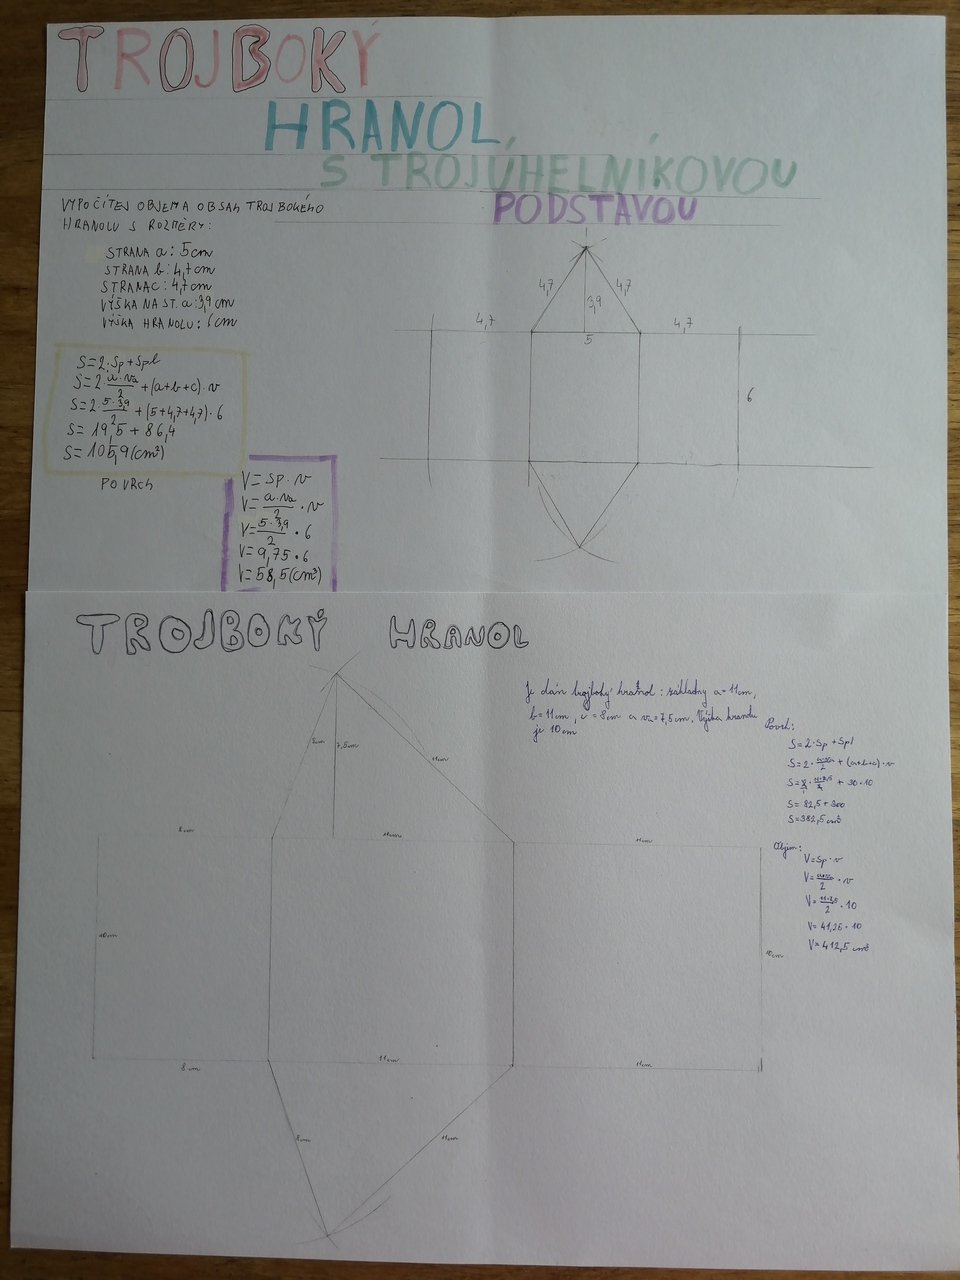 TROJBOKÝ
HRANOL
S TROJÚHELNÍKOVOU
PODSTAVOU
VYPOČÍTEJ OBJEM A OBSAH TROJBOKÉHO
HRANOLU S ROZMĚRY:
STRANA a: 5cm
STRANA b: 4,7cm
STRANA c: 4,7cm
VÝŠKA NA ST. a: 3,9 cm
VÝŠKA HRANOLU: 6cm
S=2·Sp+Spl
S=2·a·va/2+(a+b+c)·v
S=2·5·3,9/2+(5+4,7+4,7)·6
S=19,5+86,4
S=105,9(cm²)
POVRCH
V=Sp·v
V=a·va/2·v
V=5·3,9/2·6
V=9,75·6
V=58,5(cm³)
4,7
4,7
3,9
4,7
4,7
5
6
TROJBOKÝ HRANOL
Je dán trojboký hranol: základny a=11cm,
b=11cm, c=8cm a va=7,5cm. Výška hranolu
je 10cm
Povrch:
S=2·Sp+Spl
S=2·a·va/2+(a+b+c)·v
S=2/1·11·7,5/2+30·10
S=82,5+300
S=382,5 cm²
Objem:
V=Sp·v
V=a·va/2·v
V=11·7,5/2·10
V=41,25·10
V=412,5 cm³
8cm
7,5cm
11cm
8cm
11cm
11cm
10cm
10cm
8cm
11cm
11cm
8cm
11cm